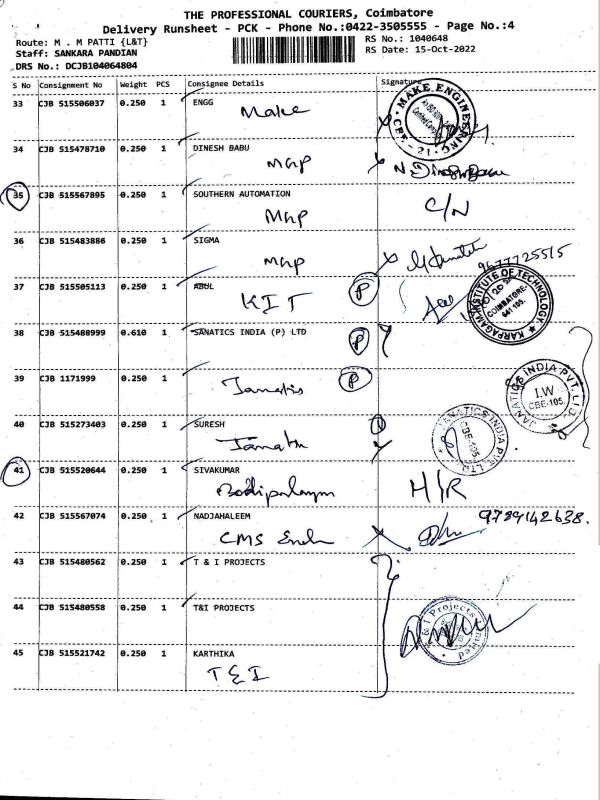 THE PROFESSIONAL COURIERS, Coimbatore
Delivery Runsheet - PCK - Phone No.:0422-3505555 - Page No.:4
Route: M . M PATTI {L&T}
RS No.: 1040648
Staff: SANKARA PANDIAN
RS Date: 15-Oct-2022
DRS No.: DCJB104064804
S No Consignment No Weight PCS Consignee Details Signature
33 CJB 515506037 0.250 1 ENGG
Make
MAKE ENGINEERING
CBE - 21
34 CJB 515478710 0.250 1 DINESH BABU
MAP
35 CJB 515567895 0.250 1 SOUTHERN AUTOMATION
MAP C/N
36 CJB 515483886 0.250 1 SIGMA
MAP 9677725515
37 CJB 515505113 0.250 1 ABUL
KIT P
KARPAGAM INSTITUTE OF TECHNOLOGY
COIMBATORE-
641 105.
38 CJB 515488999 0.610 1 SANATICS INDIA (P) LTD
P
39 CJB 1171999 0.250 1
Janatis P
JANATICS INDIA PVT. LTD.
I.W
CBE-105.
40 CJB 515273403 0.250 1 SURESH
JANATICS INDIA PVT LTD
CBE-105.
41 CJB 515520644 0.250 1 SIVAKUMAR
H/R
42 CJB 515567074 0.250 1 NADJAHALEEM
CMS 9789142638.
43 CJB 515480562 0.250 1 T & I PROJECTS
44 CJB 515480558 0.250 1 T&I PROJECTS
T & I Projects Limited
45 CJB 515521742 0.250 1 KARTHIKA
T & I